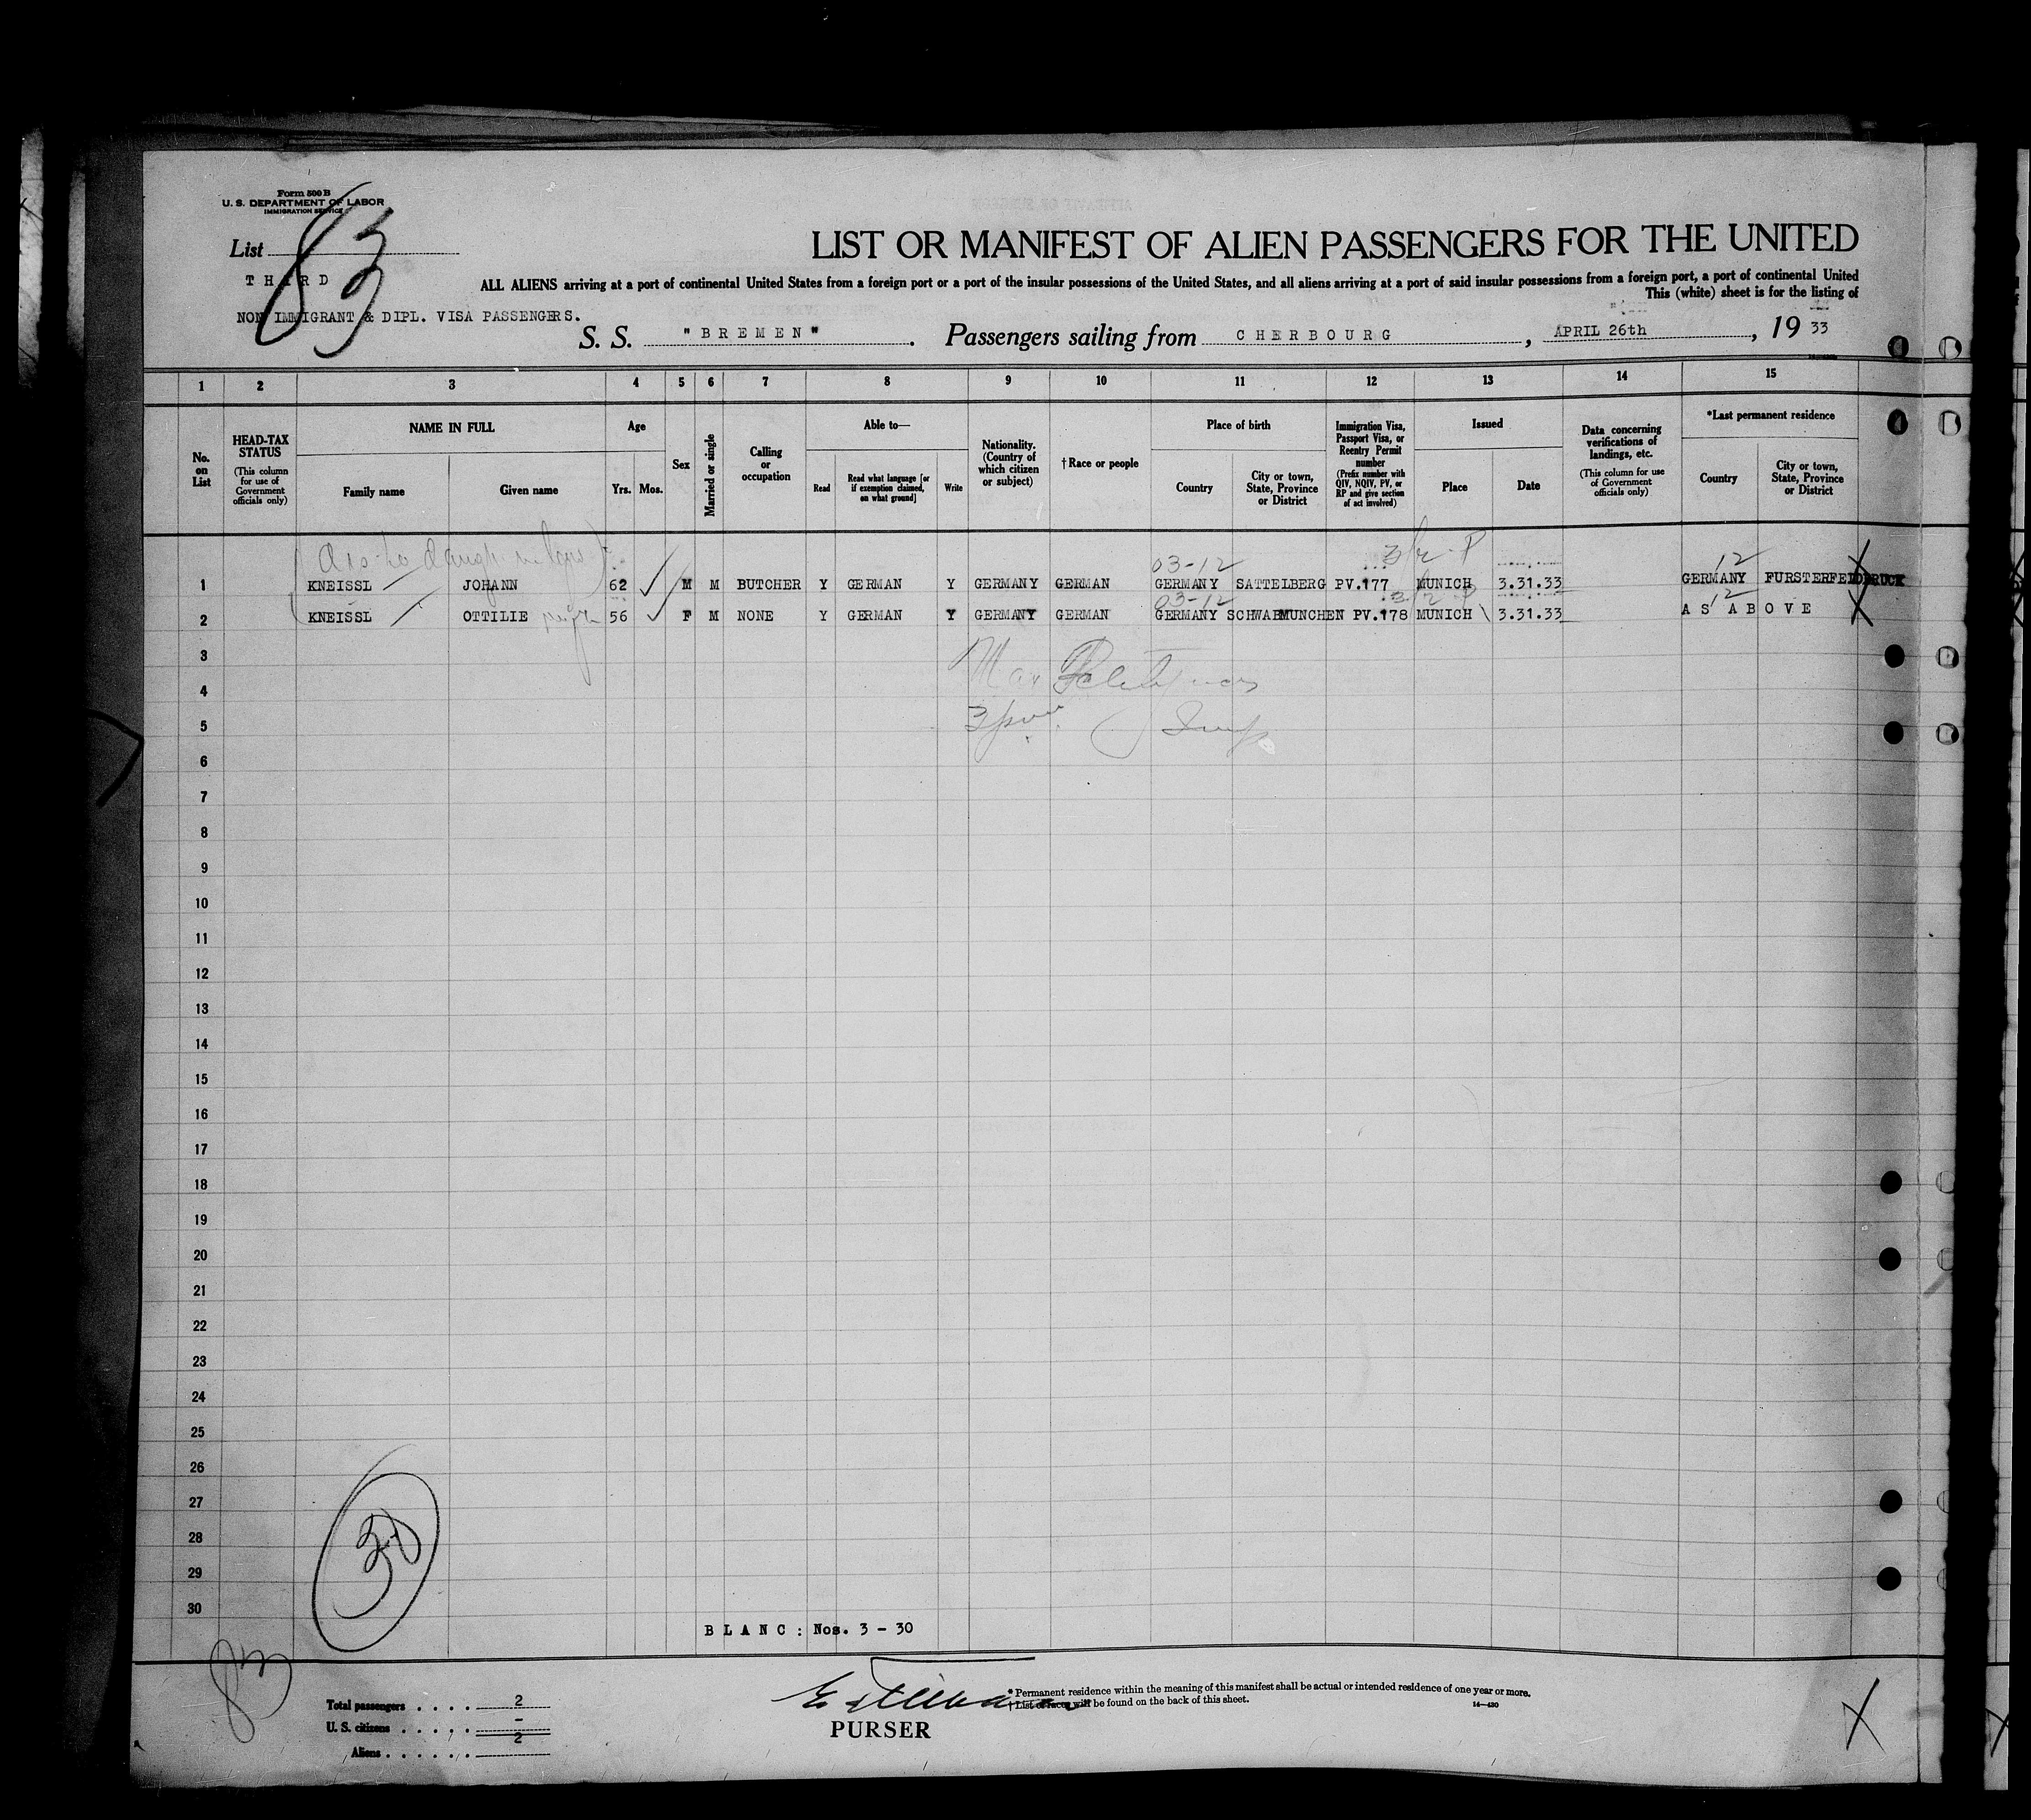 Form 500 B
U. S. DEPARTMENT OF LABOR
IMMIGRATION SERVICE
List 83
THIRD
NON IMMIGRANT & DIPL. VISA PASSENGERS.
LIST OR MANIFEST OF ALIEN PASSENGERS FOR THE UNITED
ALL ALIENS arriving at a port of continental United States from a foreign port or a port of the insular possessions of the United States, and all aliens arriving at a port of said insular possessions from a foreign port, a port of continental United
This (white) sheet is for the listing of
S. S. "BREMEN". Passengers sailing from CHERBOURG, APRIL 26th, 19 33
1 2 3 4 5 6 7 8 9 10 11 12 13 14 15
No. on List
HEAD-TAX STATUS
(This column for use of Government officials only)
NAME IN FULL
Family name
Given name
Age
Yrs. Mos.
Sex
Married or single
Calling or occupation
Able to—
Read
Read what language [or if exemption claimed, on what ground]
Write
Nationality. (Country of which citizen or subject)
†Race or people
Place of birth
Country
City or town, State, Province or District
Immigration Visa, Passport Visa, or Reentry Permit number
(Prefix number with QIV, NQIV, PV, or RP and give section of act involved)
Issued
Place
Date
Data concerning verifications of landings, etc.
(This column for use of Government officials only)
*Last permanent residence
Country
City or town, State, Province or District
03-12 12
1 KNEISSL JOHANN 62 M M BUTCHER Y GERMAN Y GERMANY GERMAN GERMANY SATTELBERG PV.177 MUNICH 3.31.33 GERMANY FURSTERFELDBRUCK
03-12 12
2 KNEISSL OTTILIE 56 F M NONE Y GERMAN Y GERMANY GERMAN GERMANY SCHWABMUNCHEN PV.178 MUNICH 3.31.33 AS ABOVE
3
4
5
6
7
8
9
10
11
12
13
14
15
16
17
18
19
20
21
22
23
24
25
26
27
28
29
30
30
BLANC: Nos. 3 - 30
83
Total passengers . . . . 2
U. S. citizens . . . . . -
Aliens . . . . . . 2
PURSER
* Permanent residence within the meaning of this manifest shall be actual or intended residence of one year or more.
† List of races will be found on the back of this sheet.
14—430